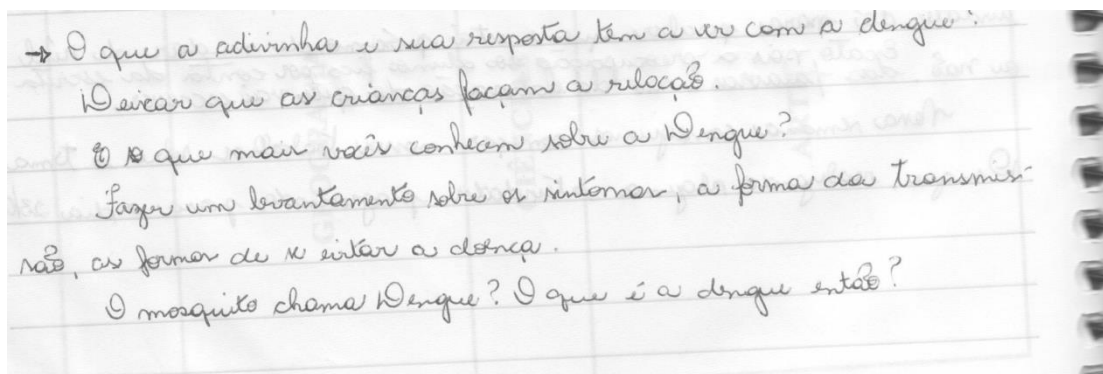 → O que a adivinha e sua resposta tem a ver com a dengue?
Deixar que as crianças façam a relação.
E o que mais vocês conhecem sobre a Dengue?
Fazer um levantamento sobre os sintomas, a forma da transmis-
são, as formas de se evitar a doença.
O mosquito chama Dengue? O que é a dengue então?